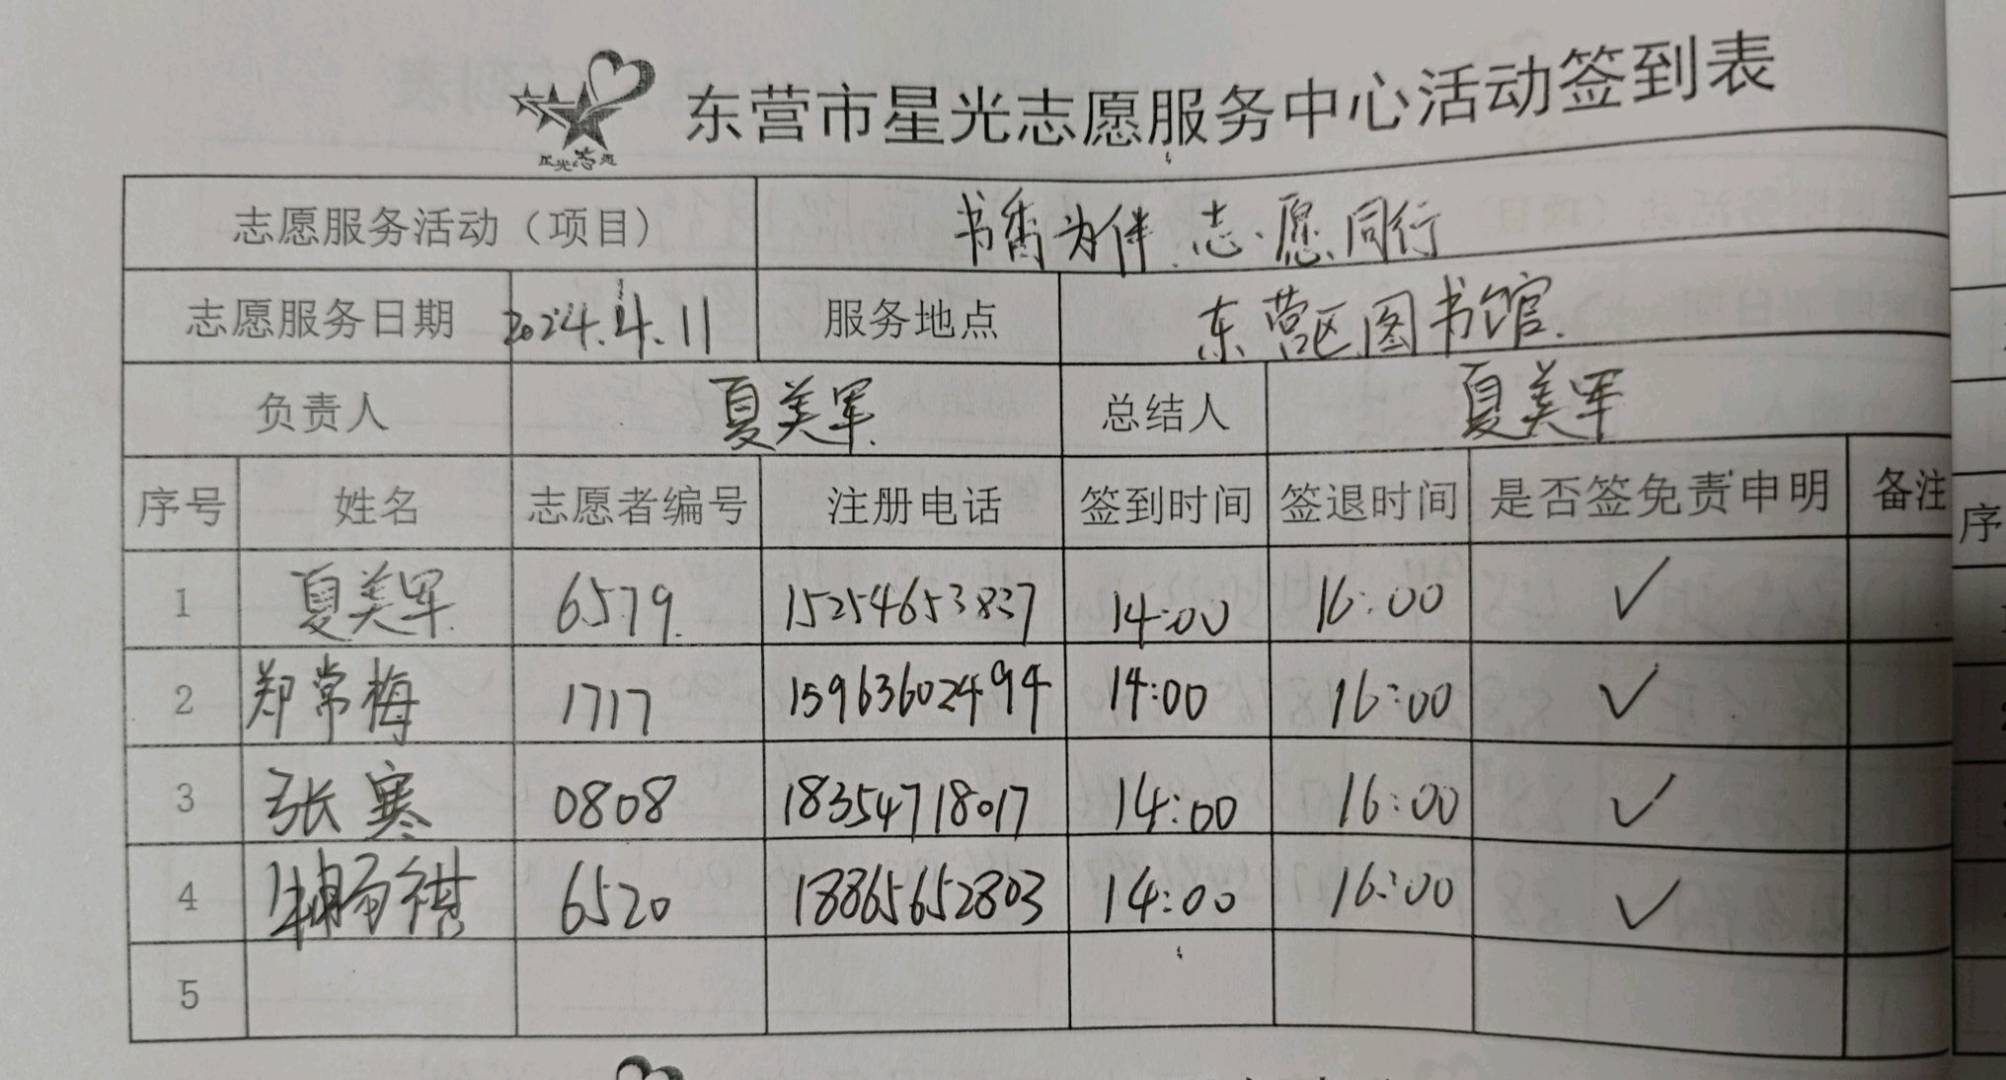 星光志愿
东营市星光志愿服务中心活动签到表
志愿服务活动（项目） 书香为伴 志愿同行
志愿服务日期 2024.4.11 服务地点 东营区图书馆.
负责人 夏美军 总结人 夏美军
序号 姓名 志愿者编号 注册电话 签到时间 签退时间 是否签免责申明 备注
1 夏美军 6579 15254653837 14:00 16:00 ✓
2 郑常梅 1717 15963602494 14:00 16:00 ✓
3 张寒 0808 18354718017 14:00 16:00 ✓
4 6520 18865652803 14:00 16:00 ✓
5
序